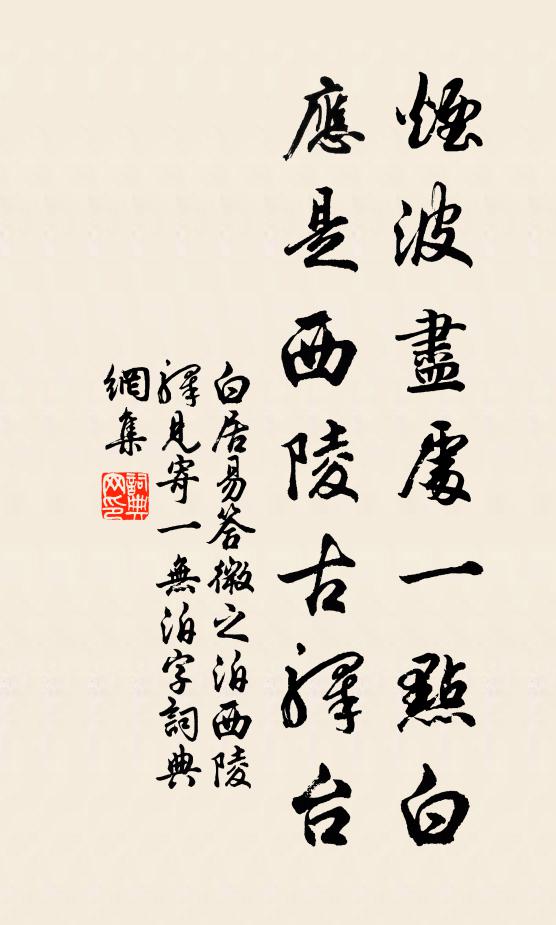 煙波盡處一點白
應是西陵古驛台
白居易答微之泊西陵
驛見寄一無泊字詞典
網集
詞典
网印